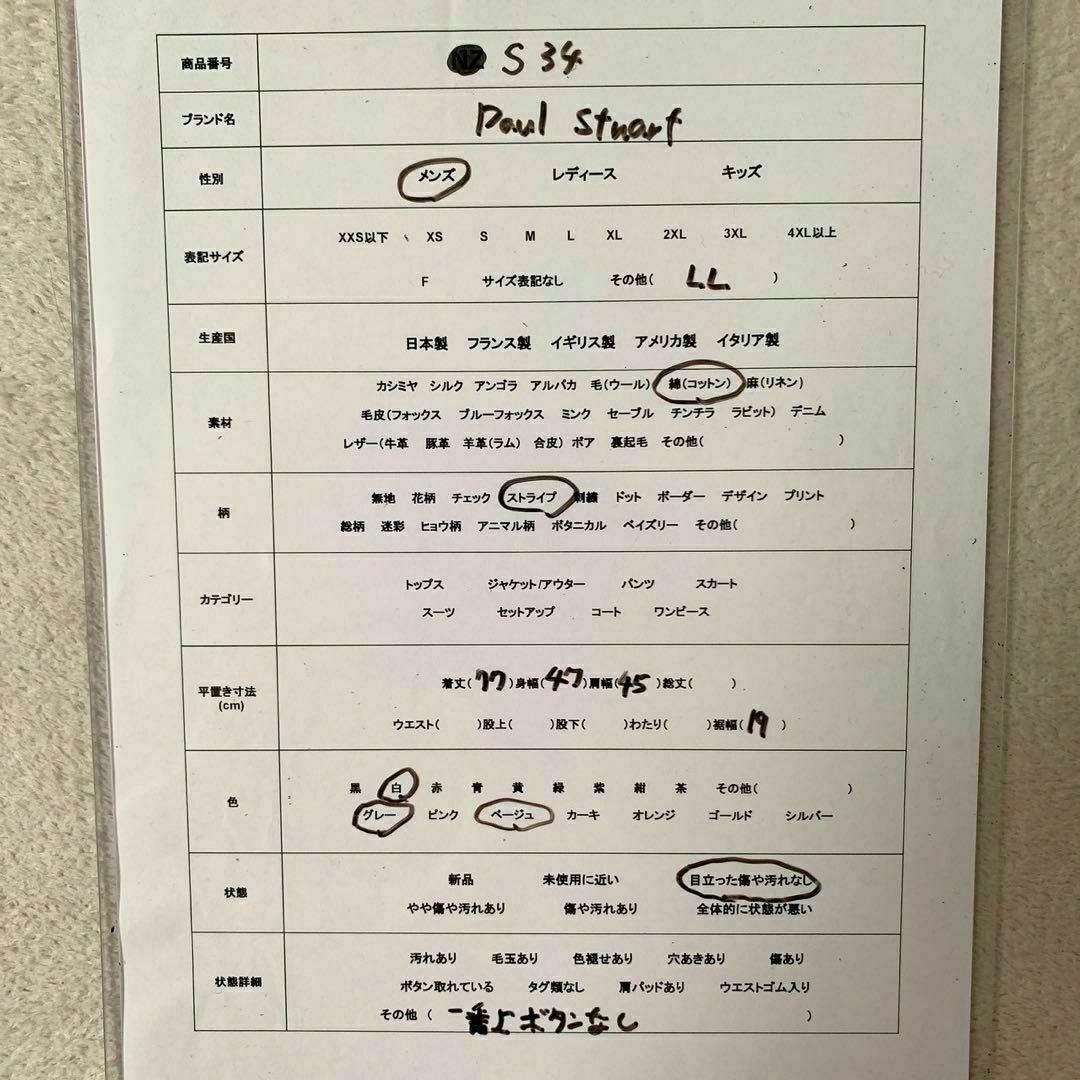 商品番号 NZ S 34
ブランド名 Paul Stuart
性別 メンズ レディース キッズ
表記サイズ
XXS以下 、 XS S M L XL 2XL 3XL 4XL以上
F サイズ表記なし その他( L.L. )
生産国 日本製 フランス製 イギリス製 アメリカ製 イタリア製
素材
カシミヤ シルク アンゴラ アルパカ 毛(ウール) 綿(コットン) 麻(リネン)
毛皮(フォックス ブルーフォックス ミンク セーブル チンチラ ラビット) デニム
レザー(牛革 豚革 羊革(ラム) 合皮) ボア 裏起毛 その他( )
柄
無地 花柄 チェック ストライプ 刺繍 ドット ボーダー デザイン プリント
総柄 迷彩 ヒョウ柄 アニマル柄 ボタニカル ペイズリー その他( )
カテゴリー
トップス ジャケット/アウター パンツ スカート
スーツ セットアップ コート ワンピース
平置き寸法
(cm)
着丈( 77 )身幅( 47 )肩幅( 45 )総丈( )
ウエスト( )股上( )股下( )わたり( )裾幅( 19 )
色
黒 白 赤 青 黄 緑 紫 紺 茶 その他( )
グレー ピンク ベージュ カーキ オレンジ ゴールド シルバー
状態
新品 未使用に近い 目立った傷や汚れなし
やや傷や汚れあり 傷や汚れあり 全体的に状態が悪い
状態詳細
汚れあり 毛玉あり 色褪せあり 穴あきあり 傷あり
ボタン取れている タグ類なし 肩パッドあり ウエストゴム入り
その他 ( 一番上ボタンなし )